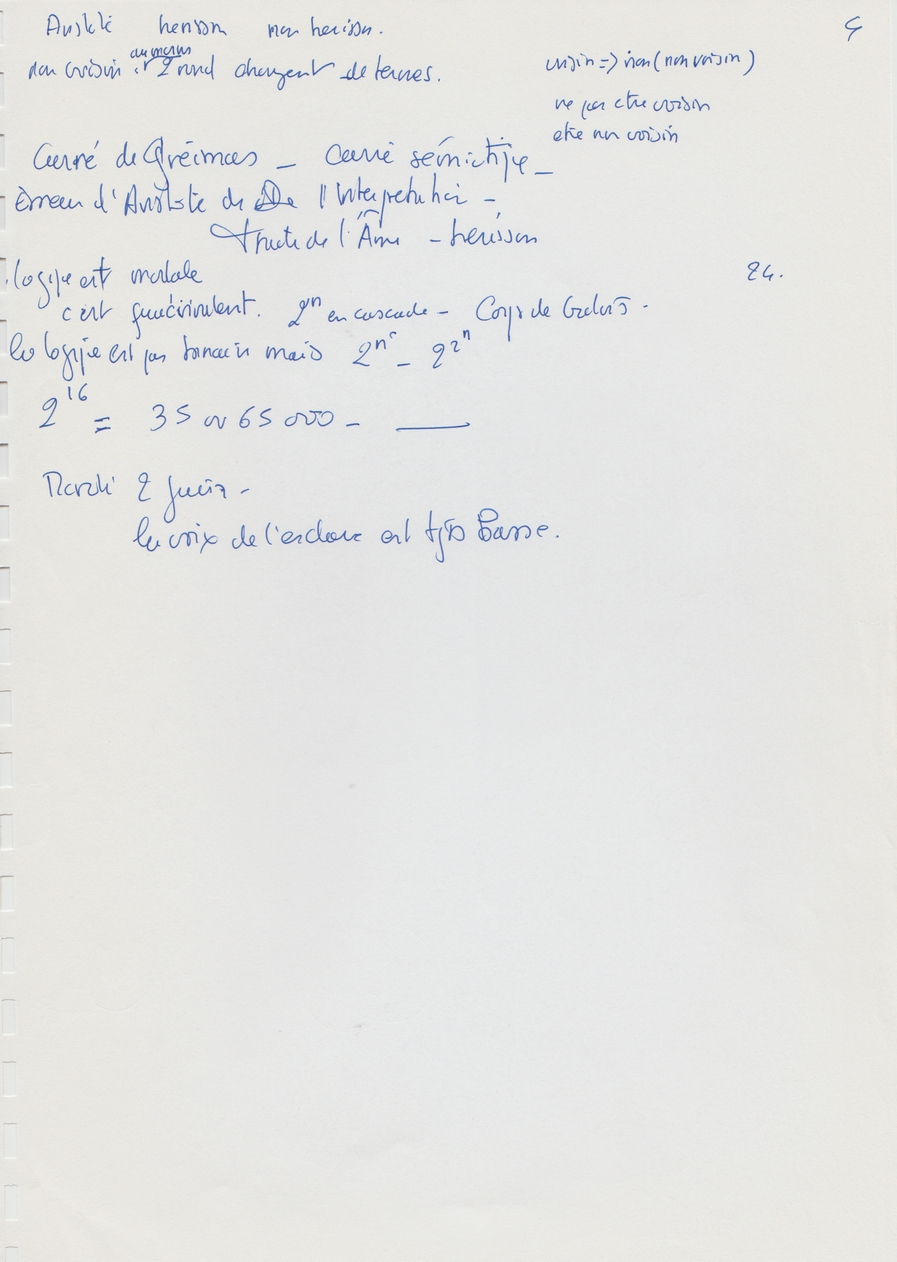 Aristote herisson non herisson. 5
au moins
non voisin 2 nœud changent de termes.
voisin => non (non voisin)
ne pas être voisin
être non voisin
Carré de Greimas – Carré sémiotique –
Erreur d'Aristote de De l'Interprétation –
traité de l'Âme – herisson
logique est modale
24.
c'est 2^n en cascade – Corps de Galois –
la logique est pas binaire mais 2^n – 2^2^n
2^16 = 35 ou 65 000 –
Mardi 2 Juin –
la voix de l'esclave est tjrs Basse.